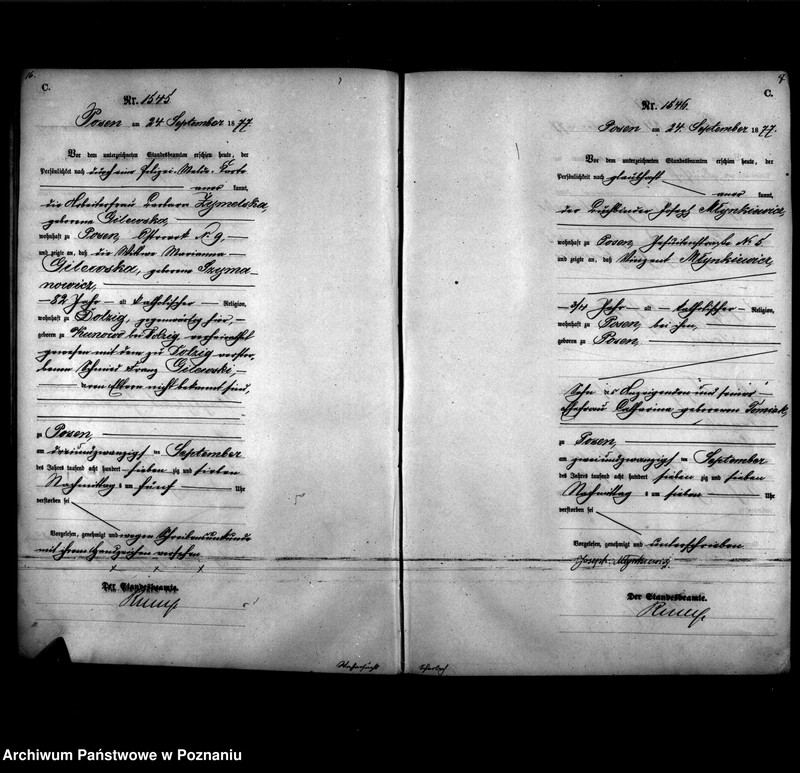 16.
C.
Nr. 1545
Posen am 24 September 1877
Vor dem unterzeichneten Standesbeamten erschien heute, der
Persönlichkeit nach durch eine Polizei-Melde-Karte
kannt,
die Arbeiterfrau Barbara Zymelska,
geborene Gilewska,
wohnhaft zu Posen, Ostrowek No 9,
und zeigte an, daß die Wittwe Marianna
Gilewska, geborene Szyma-
nowicz,
82 Jahr alt katholischer Religion,
wohnhaft zu Dolzig, gegenwärtig hier,
geboren zu Kunowo bei Dolzig verheirathet
gewesen mit dem zu Dolzig verstor-
benen Schmied Franz Gilewski,
deren Eltern nicht bekannt sind,
zu Posen,
am dreiundzwanzigsten September
des Jahres tausend acht hundert sieben zig und sieben
Nachmittags um fünf Uhr
verstorben sei
Vorgelesen, genehmigt und wegen Schreibensunkunde
mit ihrem Handzeichen versehen
x x x
Der Standesbeamte.
C.
Nr. 1546.
Posen am 24. September 1877.
Vor dem unterzeichneten Standesbeamten erschien heute, der
Persönlichkeit nach glaubhaft
kannt,
der Joseph Młynkiewicz,
wohnhaft zu Posen, Jesuitenstraße No 5
und zeigte an, daß Vincent Młynkiewicz,
3/4 Jahr alt katholischer Religion,
wohnhaft zu Posen, bei ihm,
geboren zu Posen,
Sohn des Anzeigenden und seiner
Ehefrau Catharina geborenen Tomiak,
zu Posen,
am zweiundzwanzigsten September
des Jahres tausend acht hundert sieben zig und sieben
Nachmittags um sieben Uhr
verstorben sei
Vorgelesen, genehmigt und unterschrieben
Joseph Młynkiewicz
Der Standesbeamte.
Archiwum Państwowe w Poznaniu